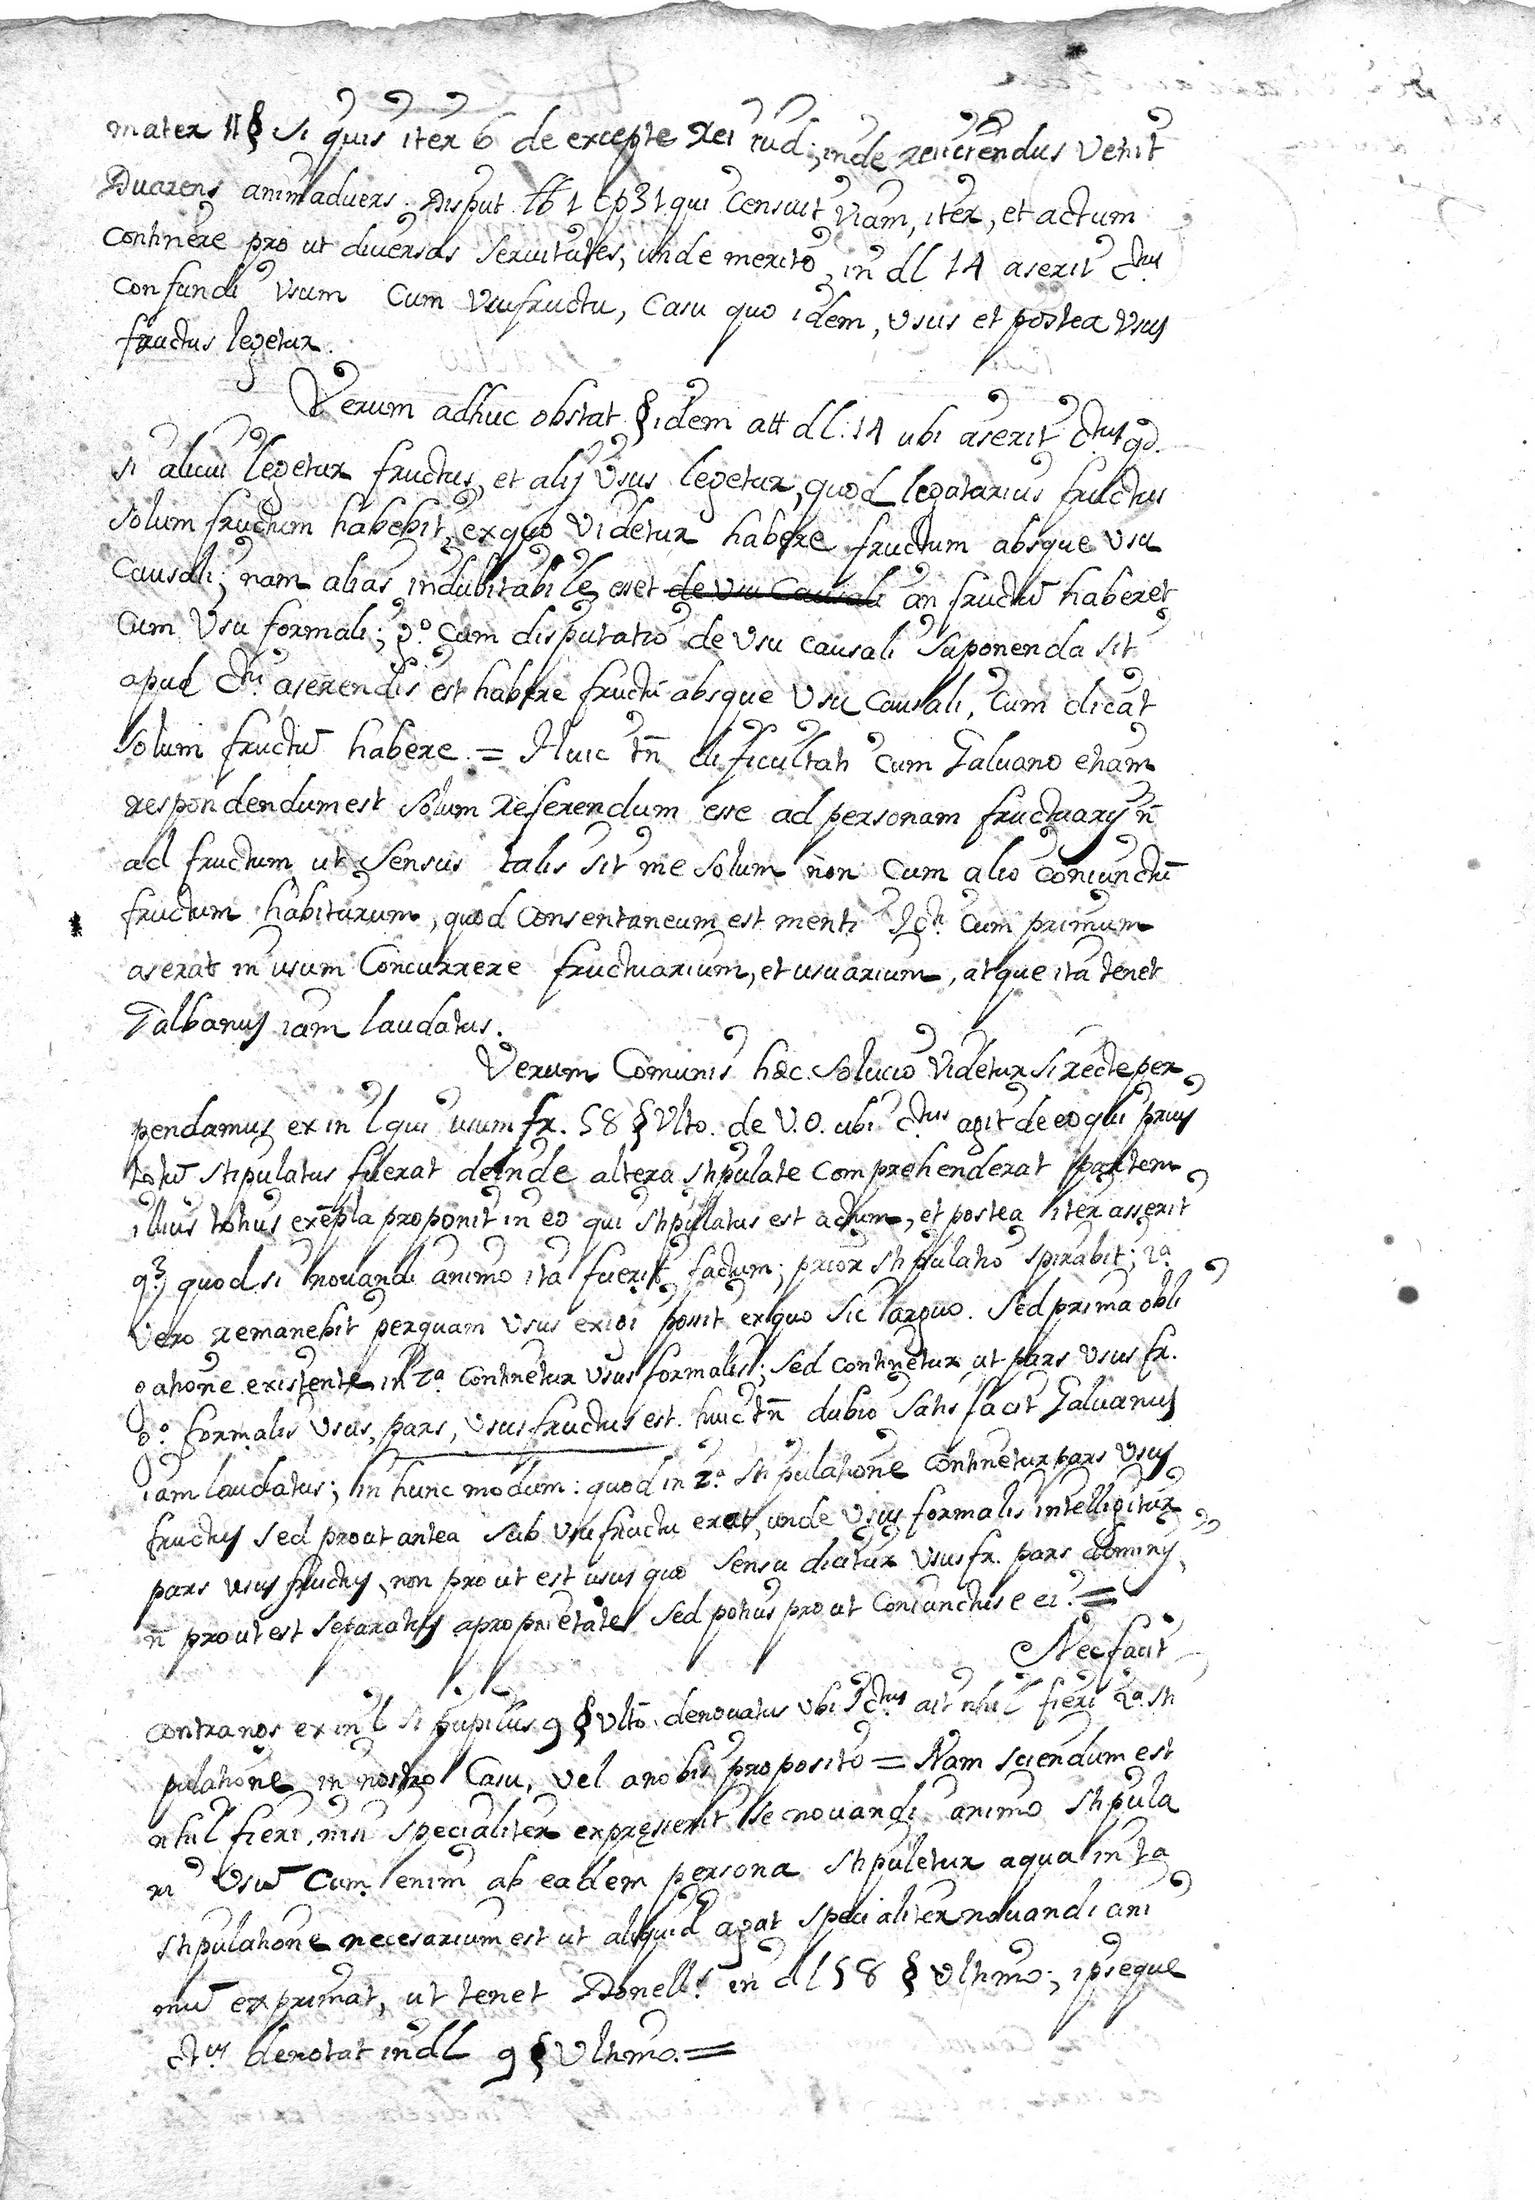 mater 11 § si quis iter 6 de excepte rei iud; inde reiiciendus venit
Duarens animadvers. Disput. lb 1 cp 31 qui censuit viam, iter, et actum
continere pro ut diversas servitutes, unde merito, in dl 14 aserit Ctus
confundi usum cum usufructu, casu quo idem, usus et postea usus
fructus legetur.
Verum adhuc obstat § idem att dl. 14 ubi aserit Ctus qd.
si alicui legetur fructus, et alij usus legetur, quod legatarius fructus
solum fructum habebit, ex quo videtur habere fructum absque usu
causali; nam alias indubitabile esset de usu causali an fructū haberet
cum usu formali; go. cum disputatio de usu causali suponenda sit
apud Cti. aserendis est habere fructū absque usu causali, cum dicat
solum fructū habere. = Huic tn̄ dificultati cum Galvano etiam
respondendum est solum referendum esse ad personam fructuarij n̄
ad fructum, ut sensus talis sit me solum non cum alio coniunctū
fructum habiturum, quod consentaneum est menti Icti. cum primum
aserat in usum concurrere fructuarium, et usuarium, atque ita tenet
Galbanus iam laudatus.
Verum comunis hæc solucio videtur si recte per
pendamus ex in l qui usum fr. 58 § ulto. de V.O. ubi Ctus agit de eo qui prius
totū stipulatus fuerat deinde altera stipulate comprehenderat partem
illius totius exēpla proponit in eo qui stipulatus est actum, et postea iter asserit
q3 quod si novandi animo ita fuerit factum; prior stipulatio spirabit; 2a
vero remanebit per quam usus exigi posit ex quo sic larguo. Sed prima obli
gatione existente in 2a continetur usus formalis; sed continetur ut pars usus fr.
go. formalis usus, pars, usus fructus est. huic tn̄ dubio satis facit Galvanus
iam laudatus; in hunc modum: quod in 2a stipulatione continetur pars usus
fructus sed prout antea sub usufructu erat, unde usus formalis intelligitur
pars usus fructus, non pro ut est usus quo sensu dicitur usus fr. pars dominij,
n̄ prout est separatus a proprietate sed potius pro ut coniunctus e ei. =
Nec facit
contra nos ex in l si pupilus 9 § ultō. de novatus ubi Ictus ait nihil fieri 2a sti
pulatione in nostro casu, vel a nobis proposito = Nam sciendum est
nihil fieri, nisi specialiter expresserit se novandi animo stipula
ri usū cum enim ab eadem persona stipuletur a qua in 1a
stipulatione necesarium est ut aliquid agat specialiter novandi ani
mū exprimat, ut tenet Donell. in dl 58 § ultimo; ipseque
Ctus denotat in dl 9 § ultimo. =